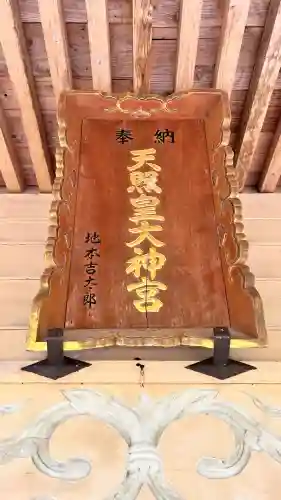 奉納
天照皇大神宮
地本吉太郎